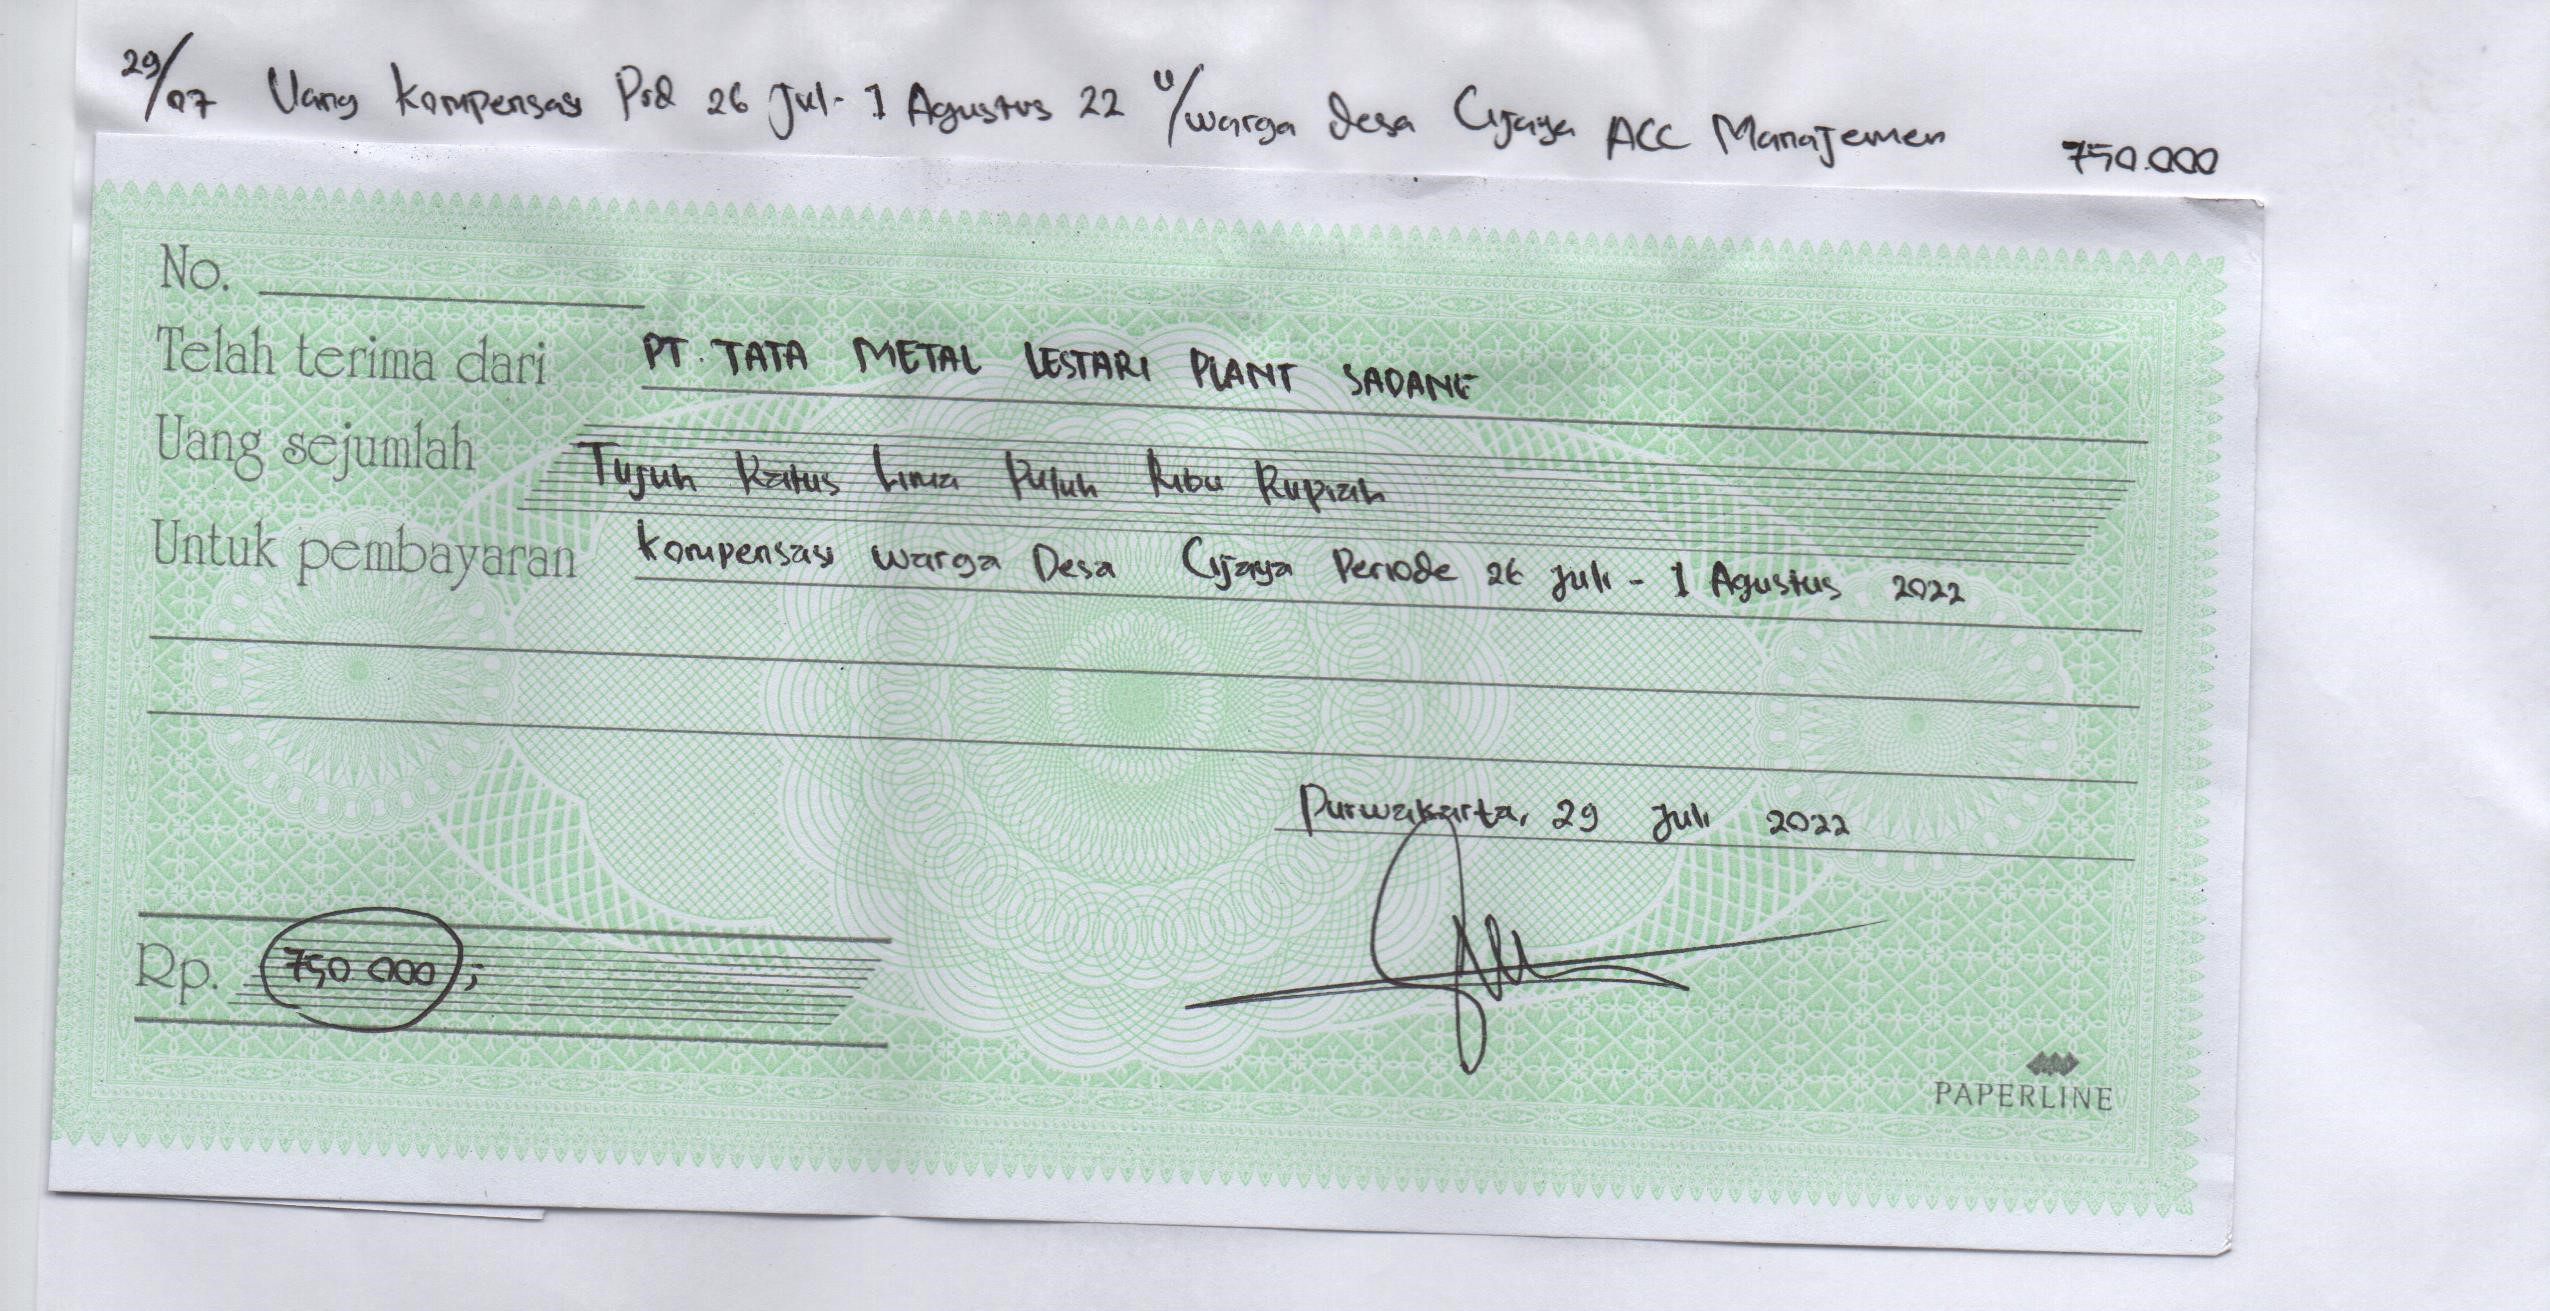 29/07 Uang kompensasi Prd 26 Jul - 1 Agustus 22 u/warga desa Cijaya ACC Manajemen 750.000
No.
Telah terima dari PT. TATA METAL LESTARI PLANT SADANG
Uang sejumlah Tujuh Ratus Lima Puluh Ribu Rupiah
Untuk pembayaran kompensasi warga Desa Cijaya Periode 26 Juli - 1 Agustus 2022
Purwakarta, 29 Juli 2022
Rp. 750 000,-
PAPERLINE